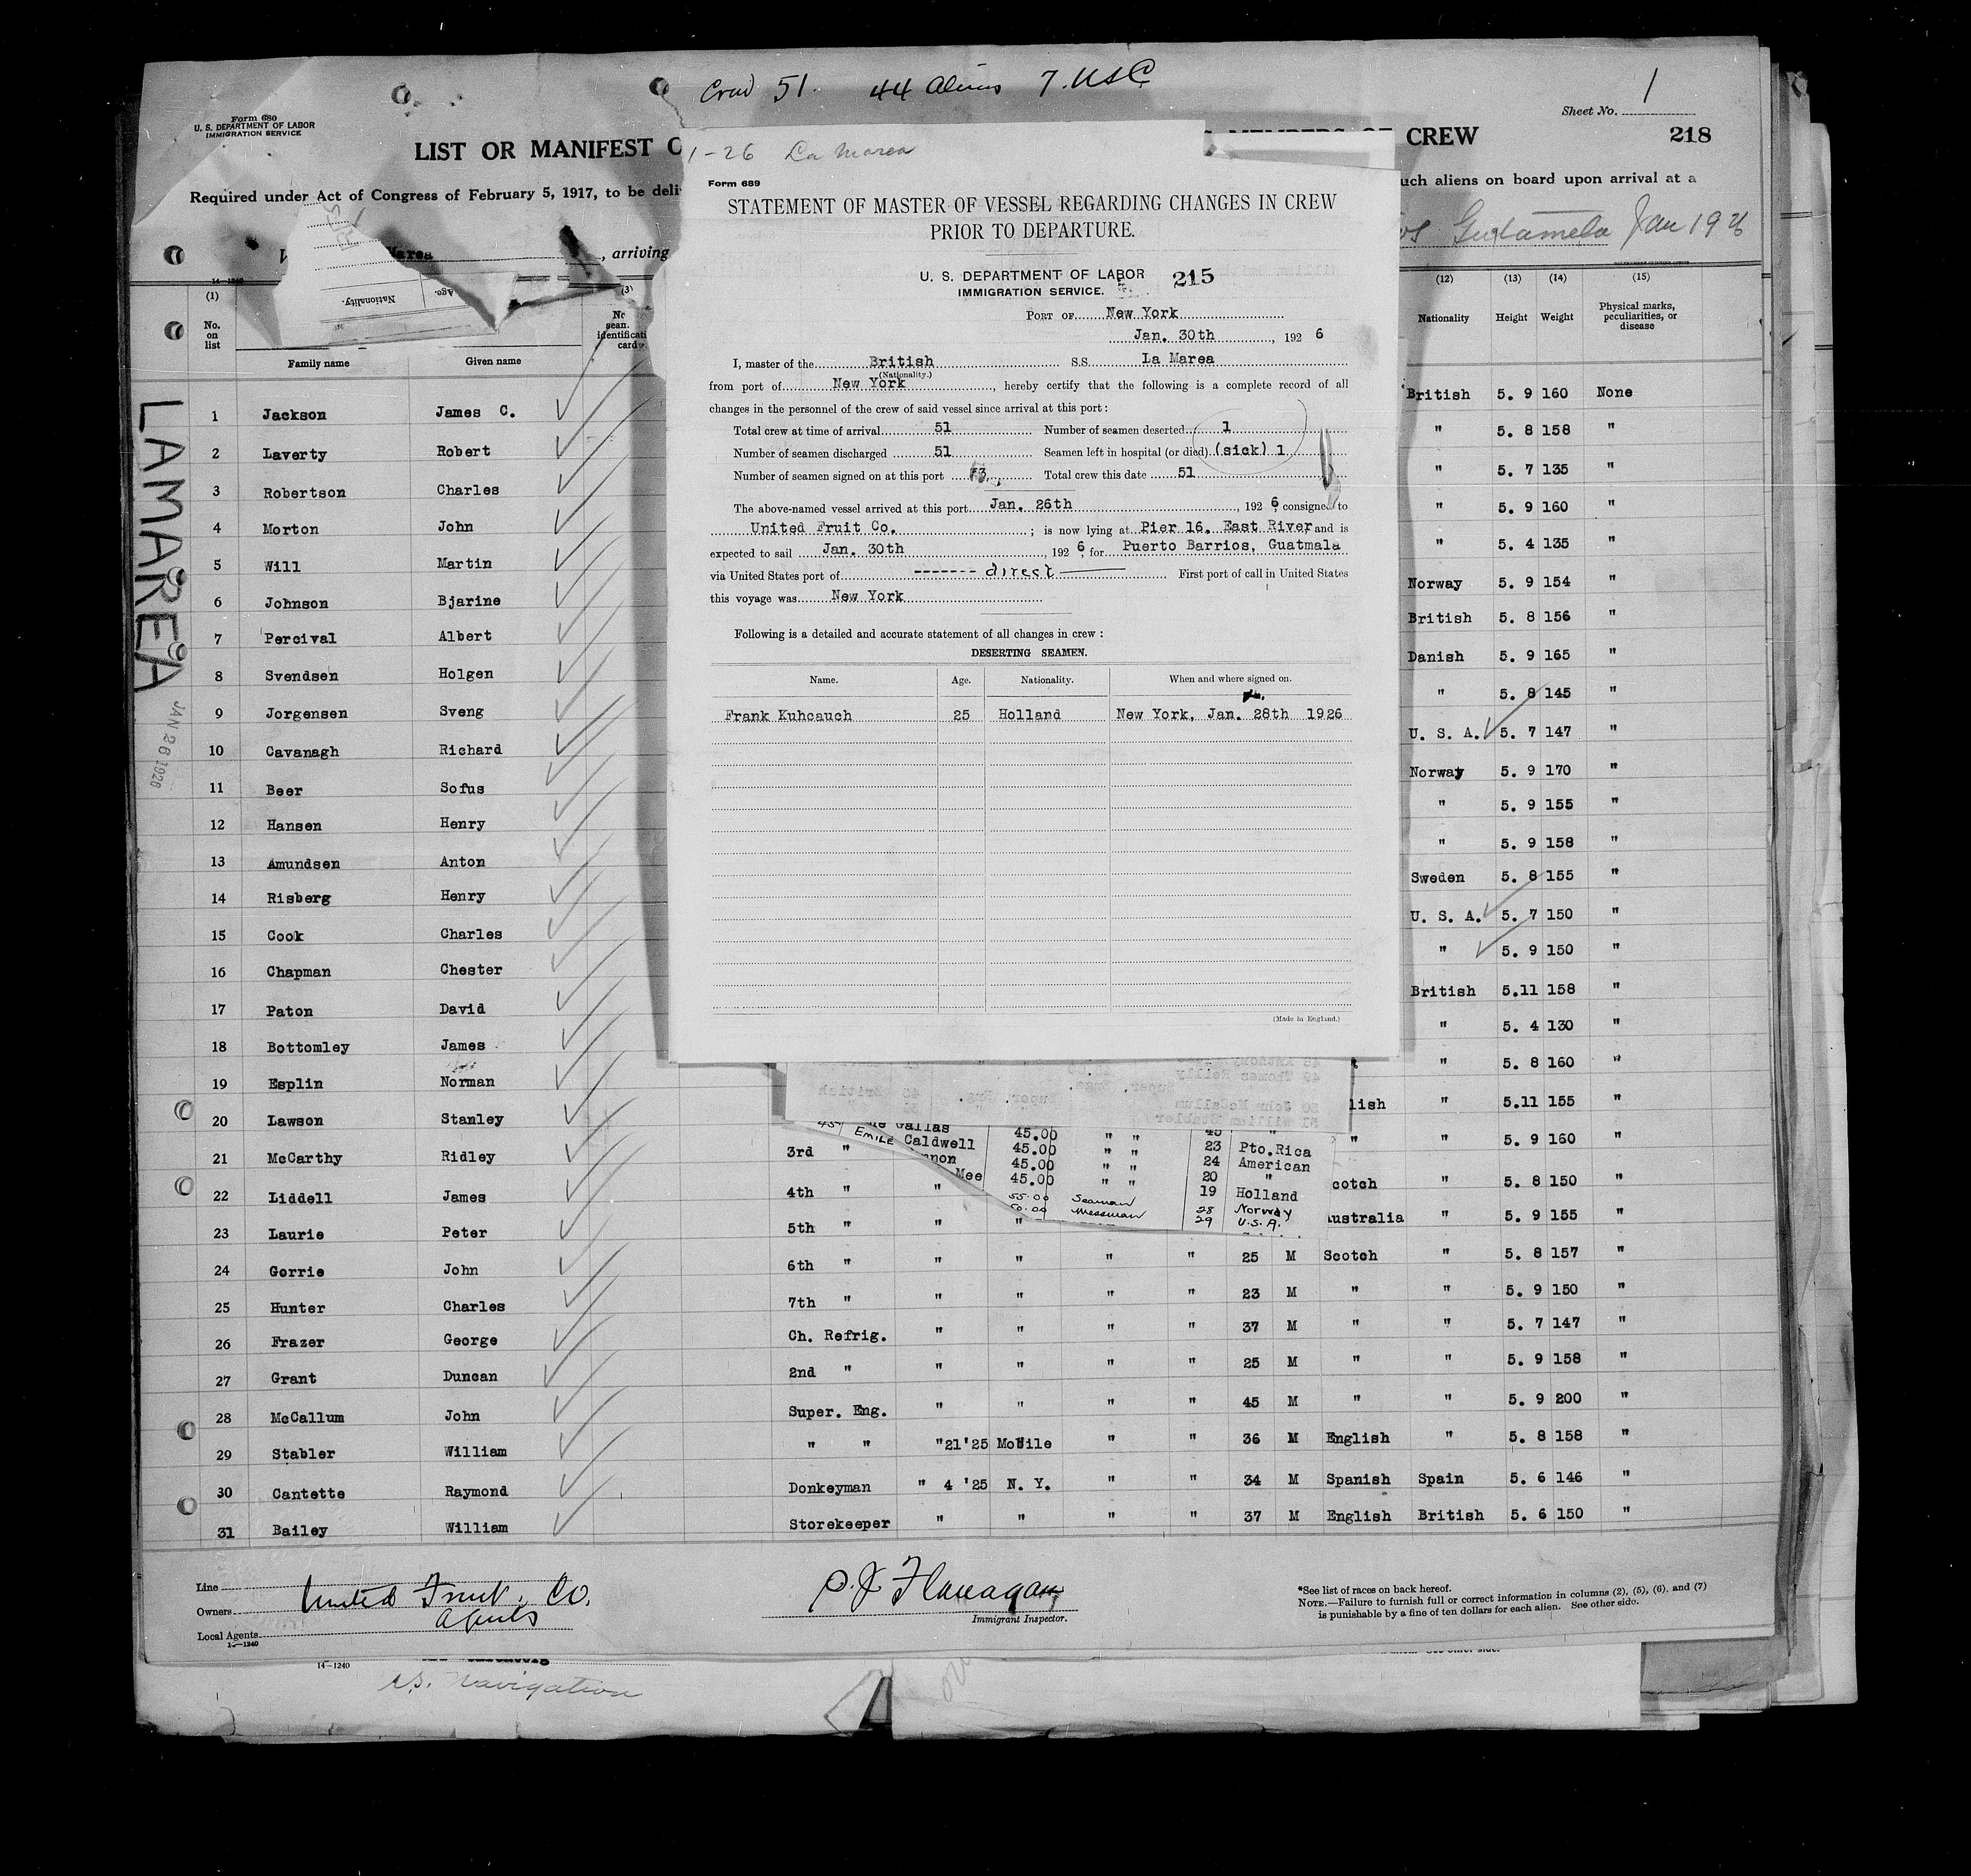 Crew 51. 44 Aliens 7. USC
Sheet No. 1
Form 680
U. S. DEPARTMENT OF LABOR
IMMIGRATION SERVICE
LIST OR MANIFEST O
MEMBERS OF CREW
218
Required under Act of Congress of February 5, 1917, to be deli
uch aliens on board upon arrival at a
Marea
, arriving
Jan 1926
Nationality.
Age.
14-1240
(1)
(3)
(12) (13) (14) (15)
No. on list
Family name Given name
identificati
card
Nationality Height Weight Physical marks, peculiarities, or disease
LAMAREA
JAN 26 1926
1-26 La Marea
Form 689
STATEMENT OF MASTER OF VESSEL REGARDING CHANGES IN CREW
PRIOR TO DEPARTURE.
U. S. DEPARTMENT OF LABOR
IMMIGRATION SERVICE.
215
PORT OF New York
Jan. 30th, 192 6
I, master of the British S.S. La Marea
(Nationality.)
from port of New York, hereby certify that the following is a complete record of all
changes in the personnel of the crew of said vessel since arrival at this port:
Total crew at time of arrival 51 Number of seamen deserted 1
Number of seamen discharged 51 Seamen left in hospital (or died) (sick) 1
Number of seamen signed on at this port Total crew this date 51
The above-named vessel arrived at this port Jan. 26th, 192 6 consigned to
United Fruit Co.; is now lying at Pier 16. East River and is
expected to sail Jan. 30th, 192 6, for Puerto Barrios, Guatmala
via United States port of ------- direct First port of call in United States
this voyage was New York
Following is a detailed and accurate statement of all changes in crew:
DESERTING SEAMEN.
Name. Age. Nationality. When and where signed on.
Frank Kuhcauch 25 Holland New York, Jan. 28th 1926
(Made in England.)
1 Jackson James C. British 5. 9 160 None
2 Laverty Robert " 5. 8 158 "
3 Robertson Charles " 5. 7 135 "
4 Morton John " 5. 9 160 "
5 Will Martin " 5. 4 135 "
6 Johnson Bjarine Norway 5. 9 154 "
7 Percival Albert British 5. 8 156 "
8 Svendsen Holgen Danish 5. 9 165 "
9 Jorgensen Sveng " 5. 8 145 "
10 Cavanagh Richard U. S. A. 5. 7 147 "
11 Beer Sofus Norway 5. 9 170 "
12 Hansen Henry " 5. 9 155 "
13 Amundsen Anton " 5. 9 158 "
14 Risberg Henry Sweden 5. 8 155 "
15 Cook Charles U. S. A. 5. 7 150 "
16 Chapman Chester " 5. 9 150 "
17 Paton David British 5.11 158 "
18 Bottomley James " 5. 4 130 "
19 Esplin Norman " 5. 8 160 "
20 Lawson Stanley lish " 5.11 155 "
21 McCarthy Ridley 3rd " " " 5. 9 160 "
22 Liddell James 4th " " cotch " 5. 8 150 "
23 Laurie Peter 5th " " " ustralia " 5. 9 155 "
24 Gorrie John 6th " " " " " 25 M Scotch " 5. 8 157 "
25 Hunter Charles 7th " " " " " 23 M " " 5. 9 150 "
26 Frazer George Ch. Refrig. " " " " 37 M " " 5. 7 147 "
27 Grant Duncan 2nd " " " " " 25 M " " 5. 9 158 "
28 McCallum John Super. Eng. " " " " 45 M " " 5. 9 200 "
29 Stabler William " " "21'25 Mobile " " 36 M English " 5. 8 158 "
30 Cantette Raymond Donkeyman " 4 '25 N. Y. " " 34 M Spanish Spain 5. 6 146 "
31 Bailey William Storekeeper " " " " 37 M English British 5. 6 150 "
Gallas 45.00 " "
Emile Caldwell 45.00 " " 23 Pto.Rica
nnon 45.00 " " 24 American
Mee 45.00 " " 20 "
19 Holland
55.00 Seaman 28 Norway
Messman 29 U.S.A.
Line
Owners United Fruit. Co.
Agents
Local Agents
14-1240
P.J Flanagan
Immigrant Inspector.
*See list of races on back hereof.
NOTE.—Failure to furnish full or correct information in columns (2), (5), (6), and (7)
is punishable by a fine of ten dollars for each alien. See other side.
14-1240
U.S. Navigation